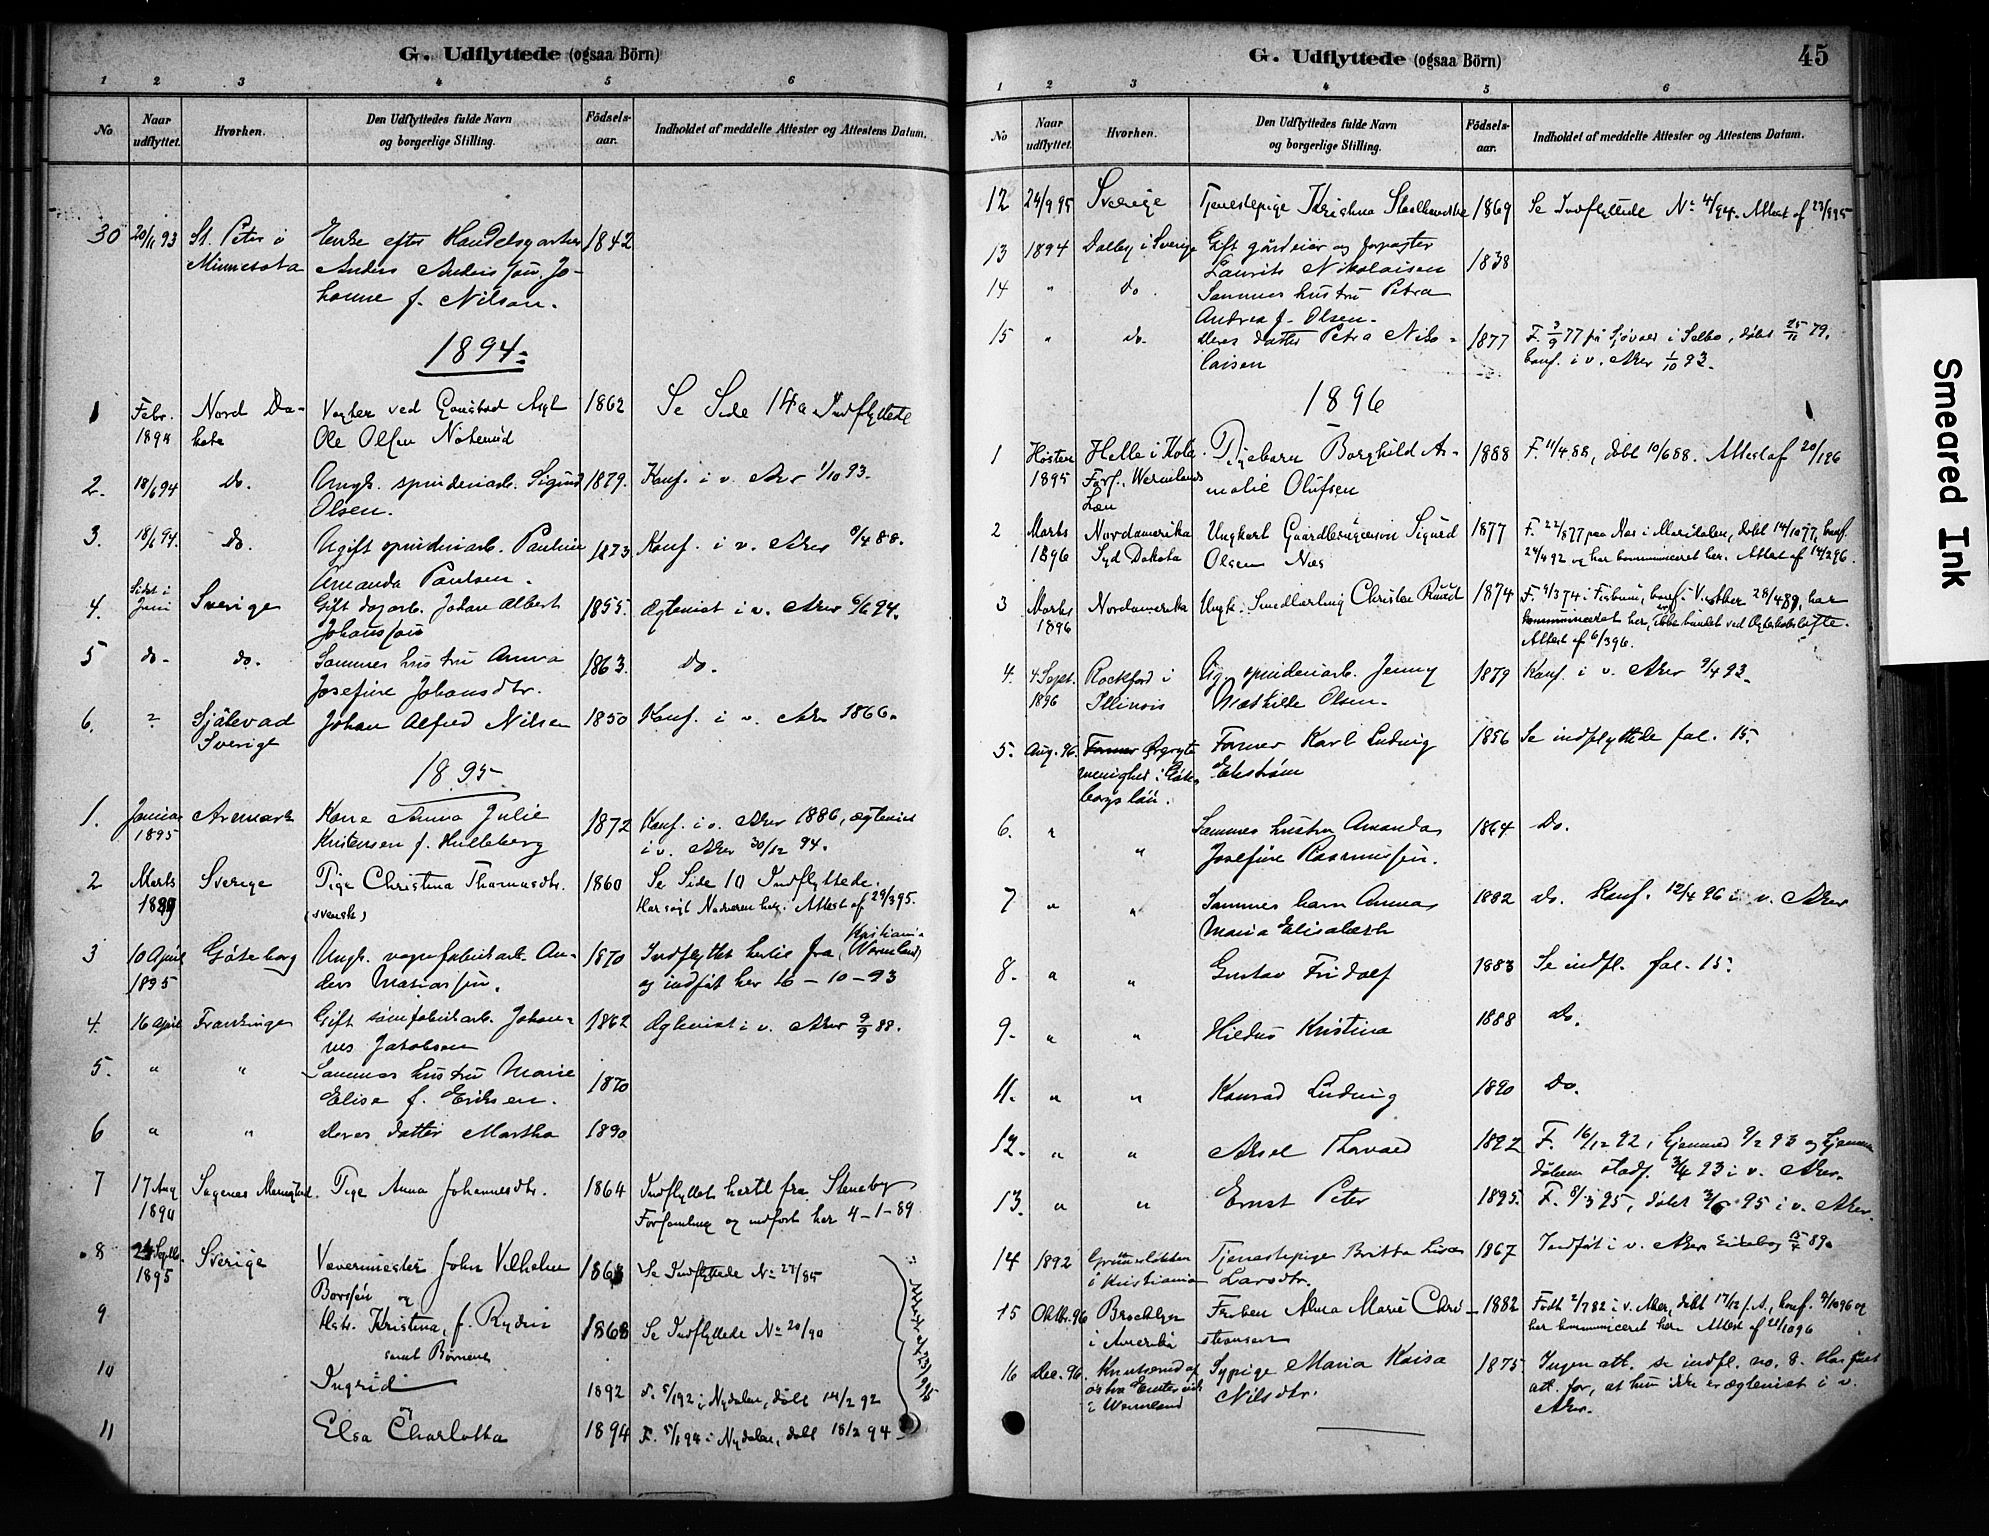 G. Udflyttede (ogsaa Börn)
1 2 3 4 5 6
No Naar udflyttet. Hvorhen. Den Udflyttedes fulde Navn og borgerlige Stilling. Födsels-aar. Indholdet af meddelte Attester og Attestens Datum.
30 20/11 93 St. Peter i Enke efter 1842
Minnesota Anders Jo-
f. Nilson.
1894
1 Febr. Nord Da- ved Gaustad Asyl 1862 Se Side 14a Indflyttede
1894 kota Ole Olsen
2. 18/6 94 do. Ungk. spinderiarb. Sigurd 1879. Konf. i v. Aker 1/10 93.
Olsen.
3. 18/6 94. do. Ugift spinderiarb. Pauline 1873 Konf. i v. Aker 8/4 88.
Amanda Paulsen.
4. Sidst i Juni Sverige Gift dagarb. Johan Albert 1855. Ægteviet i v. Aker 94.
5 do. do. Sammes hustru Anna 1863. do.
Josefine Johansdtr.
6. Själevad Johan Alfred Nilsen 1850 Konf. i v. Aker 1866.
Sverige
1895
1. Januar Aremark Kone Anna Julie 1872 Konf. i v. Aker 1886, ægteviet
1895 Kristensen f. Hulleberg i v. Aker 30/12 94.
2 Marts Sverige Pige Christina Thomasdtr. 1860 Se Side 10 Indflyttede.
(svensk) Har søgt Attest af 29/3 95.
3 10 April Göteborg Ungk. vognfabrikarb. An- 1870 Indflyttet hertil fra (Kristiania Wermland)
1895 ders og indført her 16-10-93
4. 16 April Gift sömfabrikarb. Johan- 1862 Ægteviet i v. Aker 9/9 88.
nes Jakobsen
5. " " Sammes hustru Marie 1870
Elise f. Eriksen.
6 " " deres datter Martha 1890
7 17 Aug Sagenes Menighed. Pige Anna Johannesdtr. 1864 Indflyttet hertil fra Steneby
1894 Forsamling og indført her 4-1-89
8 Septbr. Sverige Vævermester John Vilhelm 1868 Se Indflyttede No 27/85
1895 og
9 Hstr. Kristina, f. Rydin 1868 Se Indflyttede No 20/90
samt Børnene
10 Ingrid 1892 F. 5/1 92 i Nydalen, døbt 14/2 92
11 Elsa Charlotta 1894 F. 5/1 94 i Nydalen, døbt 18/2 94
G. Udflyttede (ogsaa Börn) 45
1 2 3 4 5 6
No Naar udflyttet. Hvorhen. Den Udflyttedes fulde Navn og borgerlige Stilling. Födsels-aar. Indholdet af meddelte Attester og Attestens Datum.
12 24/9 95 Sverige Tjenestepige Kristina 1869 Se Indflyttede No 4/94. Attest af 23/9 95
13 1894 Dalby i Sverige Gift gårdeier og forpagter 1838
Laurits Nikolaisen
14 " do. Sammes hustru Petra
Andrea f. Olsen.
15 " do. Deres datter Petra Niko- 1877 F. 3/9 77 på i Selbo, døbt 25/11 79.
laisen konf. i v. Aker 1/10 93.
1896
1 Høsten Helle i Köla Pigebarn Borghild A- 1888 F. 11/4 88, døbt 10/6 88. Attest af 20/1 96
1895 Förs. Wermlands malie Olufsen
Län
2 Marts Nordamerika Ungkarl Gaardbrugersøn Sigurd 1877 F. 22/8 77 paa Næs i Maridalen, døbt 14/10 77, konf.
1896 Syd Dakota Olsen Næs 24/4 92 og har kommuniceret her. Attest af 14/2 96.
3 Marts Nordamerika Ungk. Smedlærling Christen 1874 F. 4/3 74 i konf. i V. Aker 28/4 89, har
1896 kommuniceret her, er ikke bundet ved Ægteskabsløfte.
Attest af 6/3 96.
4. 4 Sept. Rockford i Ug. spinderiarb. Jenny 1879 Konf. i v. Aker 9/4 93.
1896 Illinois Mathilde Olsen.
5. Aug. 96. Örgryte Former Karl Ludvig 1856 Se indflyttede fol. 15.
menighed i Göte- Ekström
borgs län.
6. " " Sammes hustru Amanda 1864 Do.
Josefine Rasmussen.
7 " " Sammes barn Anna 1882 do. Konf. 12/4 96 i v. Aker
Maria Elisabeth
8. " " Gustav Fridolf 1883 Se indfl. fol. 15.
9. " " Hildus Kristina 1888 Do.
11. " " Konrad Ludvig 1890 Do.
12. " " Aksel Thorvald 1892 F. 16/12 92, hjemmed 9/2 93 og hjemme
dåben stadf. 3/4 93 i v. Aker.
13. " " Ernst Peter 1895. F. 8/3 95, døbt 3/6 95 i v. Aker.
14 1892 Grünerløkken Tjenestepige Britta Lisa 1867 Indført i v. Aker 89.
i Kristiania Larsdtr.
15 Oktbr. 96 Brooklyn Frøken Alma Marie Chri- 1882 Født 2/7 82 i v. Aker, døbt 17/12 s. A., konf. 4/10 96 og
i Amerika stiansen har kommuniceret her. Attest af 21/10 96
16 Dec. 96. Sypige Maria Kaisa 1875 Ingen att. se indfl. no. 8. Har fået
östra Emtervik Nilsdtr. att. for, at hun ikke er ægteviet i v.
i Wermland Aker.
Smeared Ink